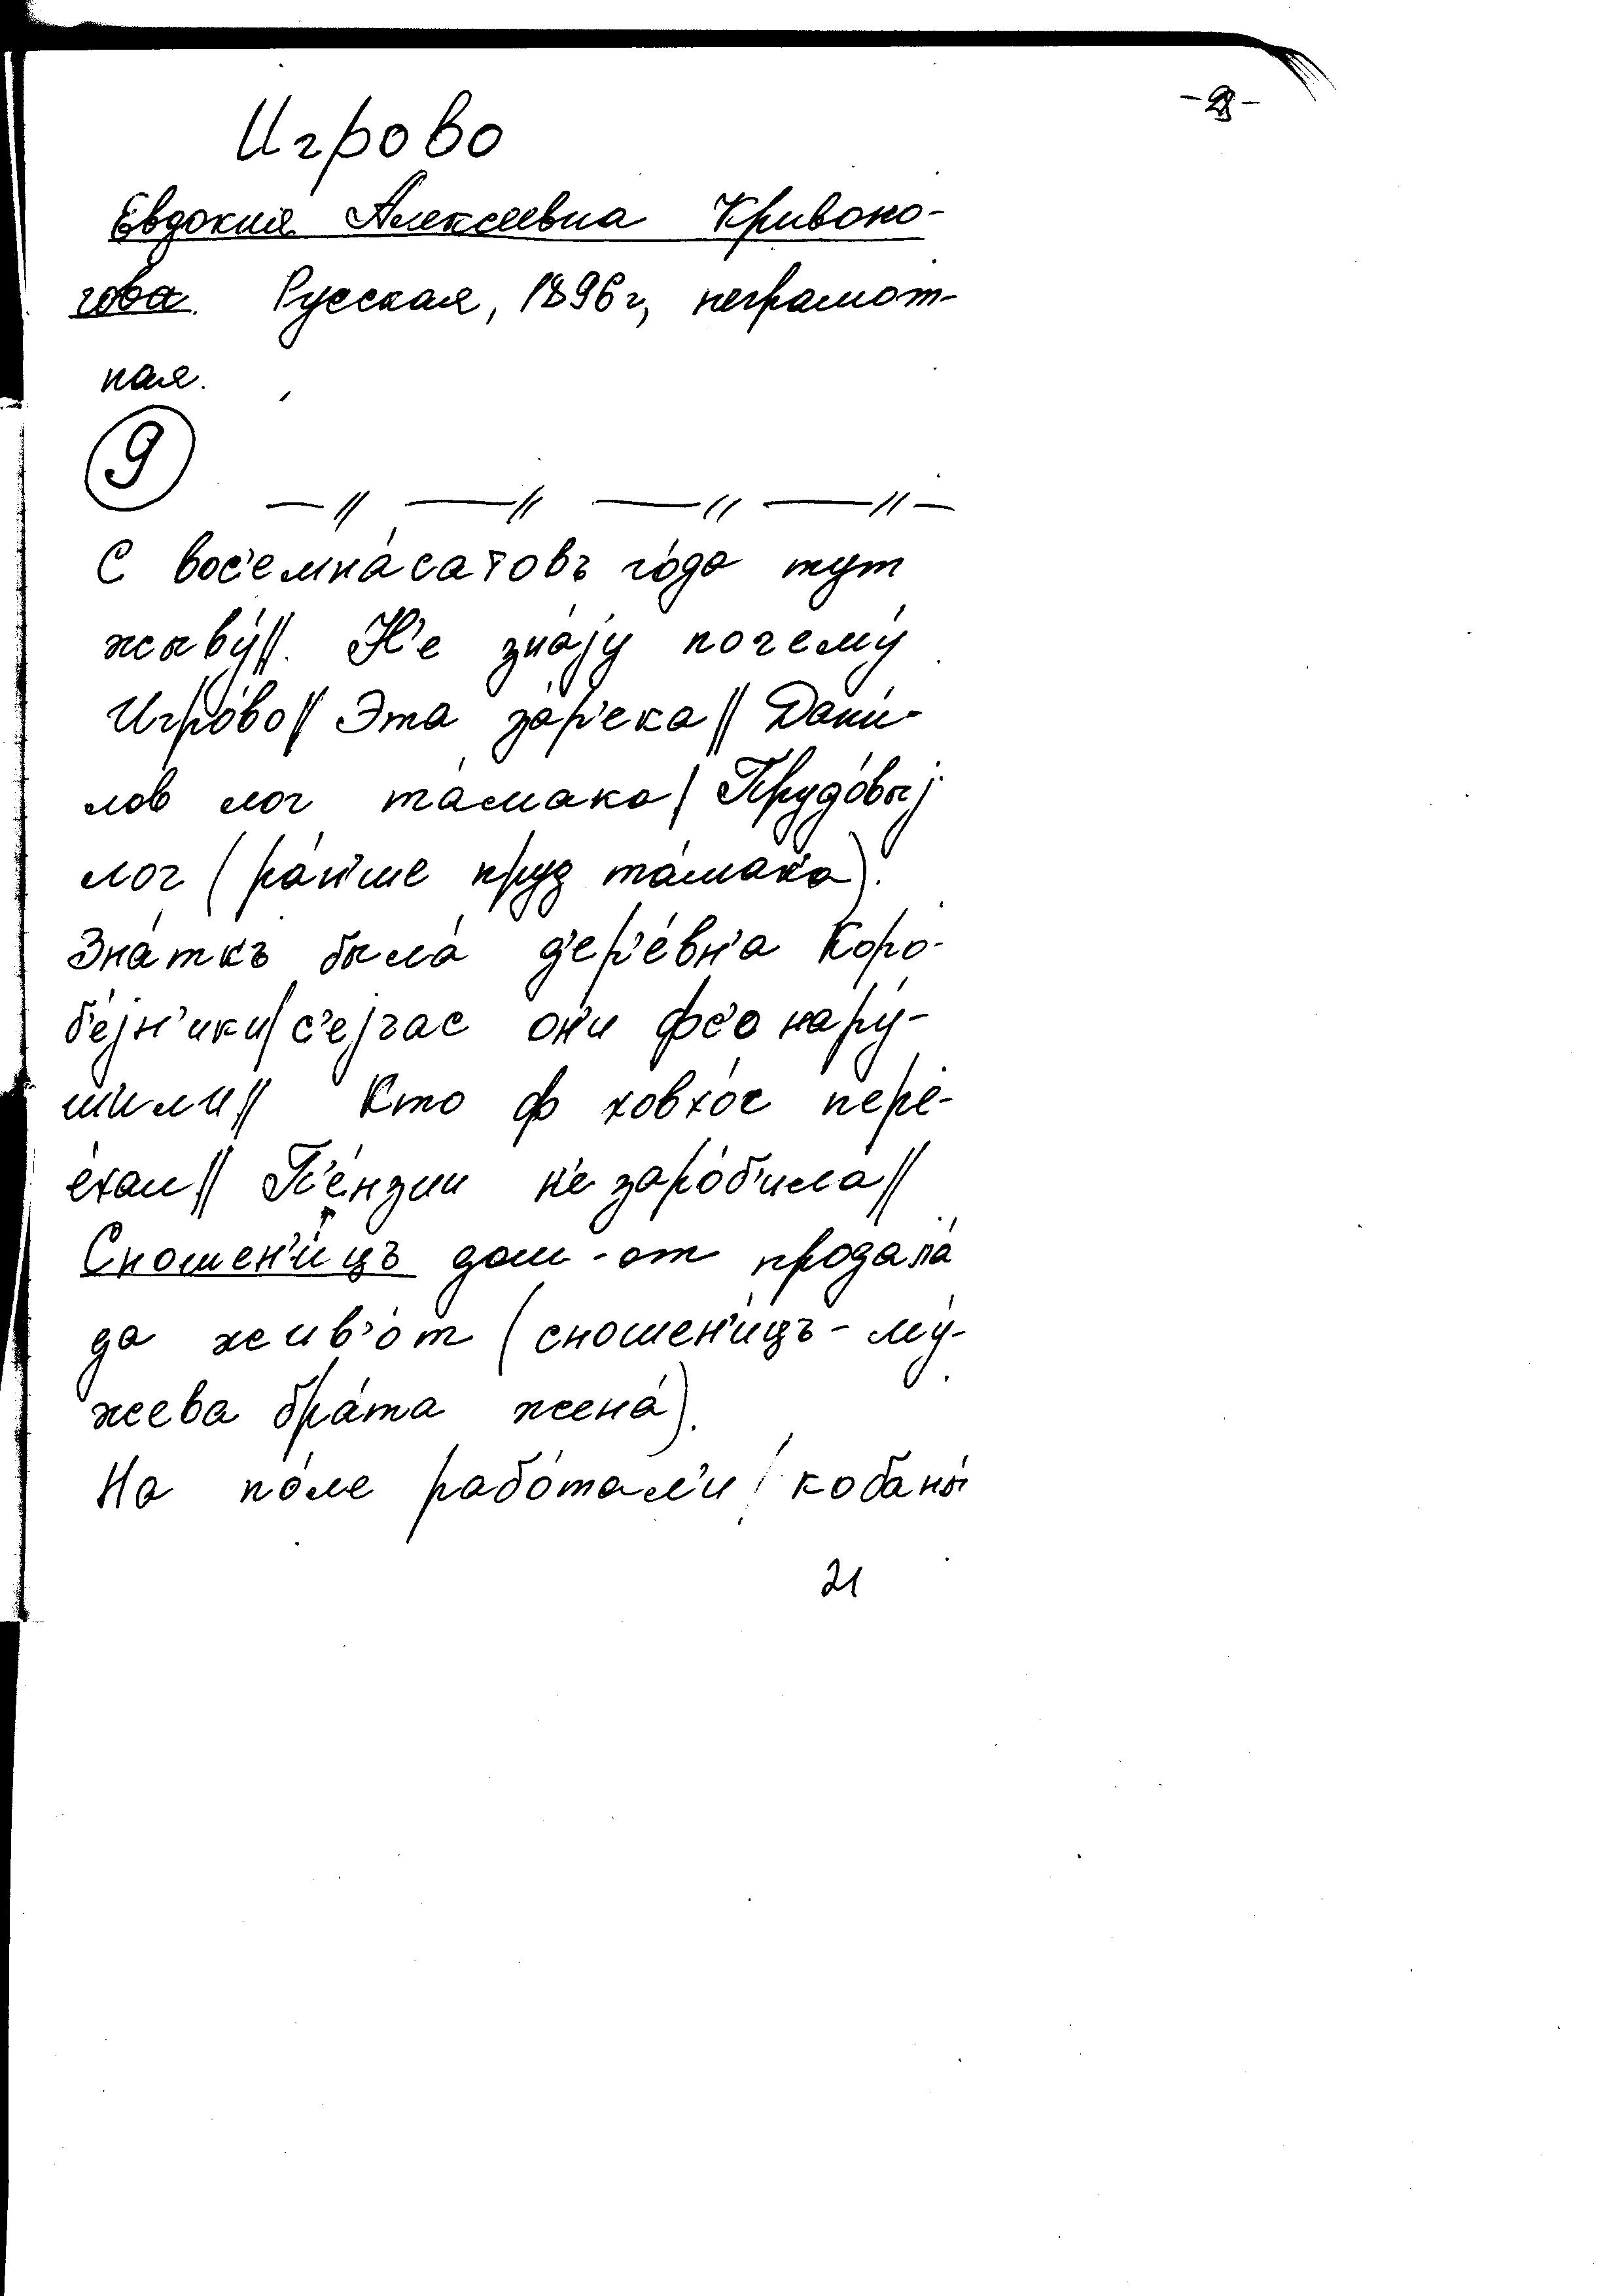 Игрово
Евдокия Алексеевна Кривоно-
гова. Русская, 1896 г, неграмот-
ная.
9
— // — // — // — // —
С вос'емна́сатовъ го́да тут
жыву́ //. Н'е зна́jу почему́
Игро́во // Эта за́р'ека // Дани́-
лов лог та́мака / Прудо́выj
лог (ра́н'ше пруд та́мака).
Зна́ткъ была́ д'ер'е́вн'а Коро-
б'е́jн'ики / с'еjчас он'и фс'о нару́-
шили // Кто ф ховхо́с пере-
е́хал // П'е́нзии н'е заро́б'ила //
Сношен'и́цъ дом-от продала́
да жив'о́т (сношен'и́цъ - му́-
жева бра́та жена́).
На по́ле рабо́тал'и / кобаны́
21